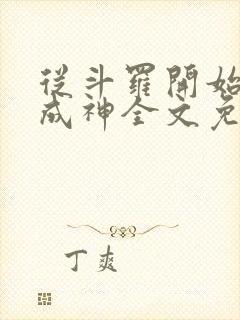 從斗羅開始
成神全文免
丁爽